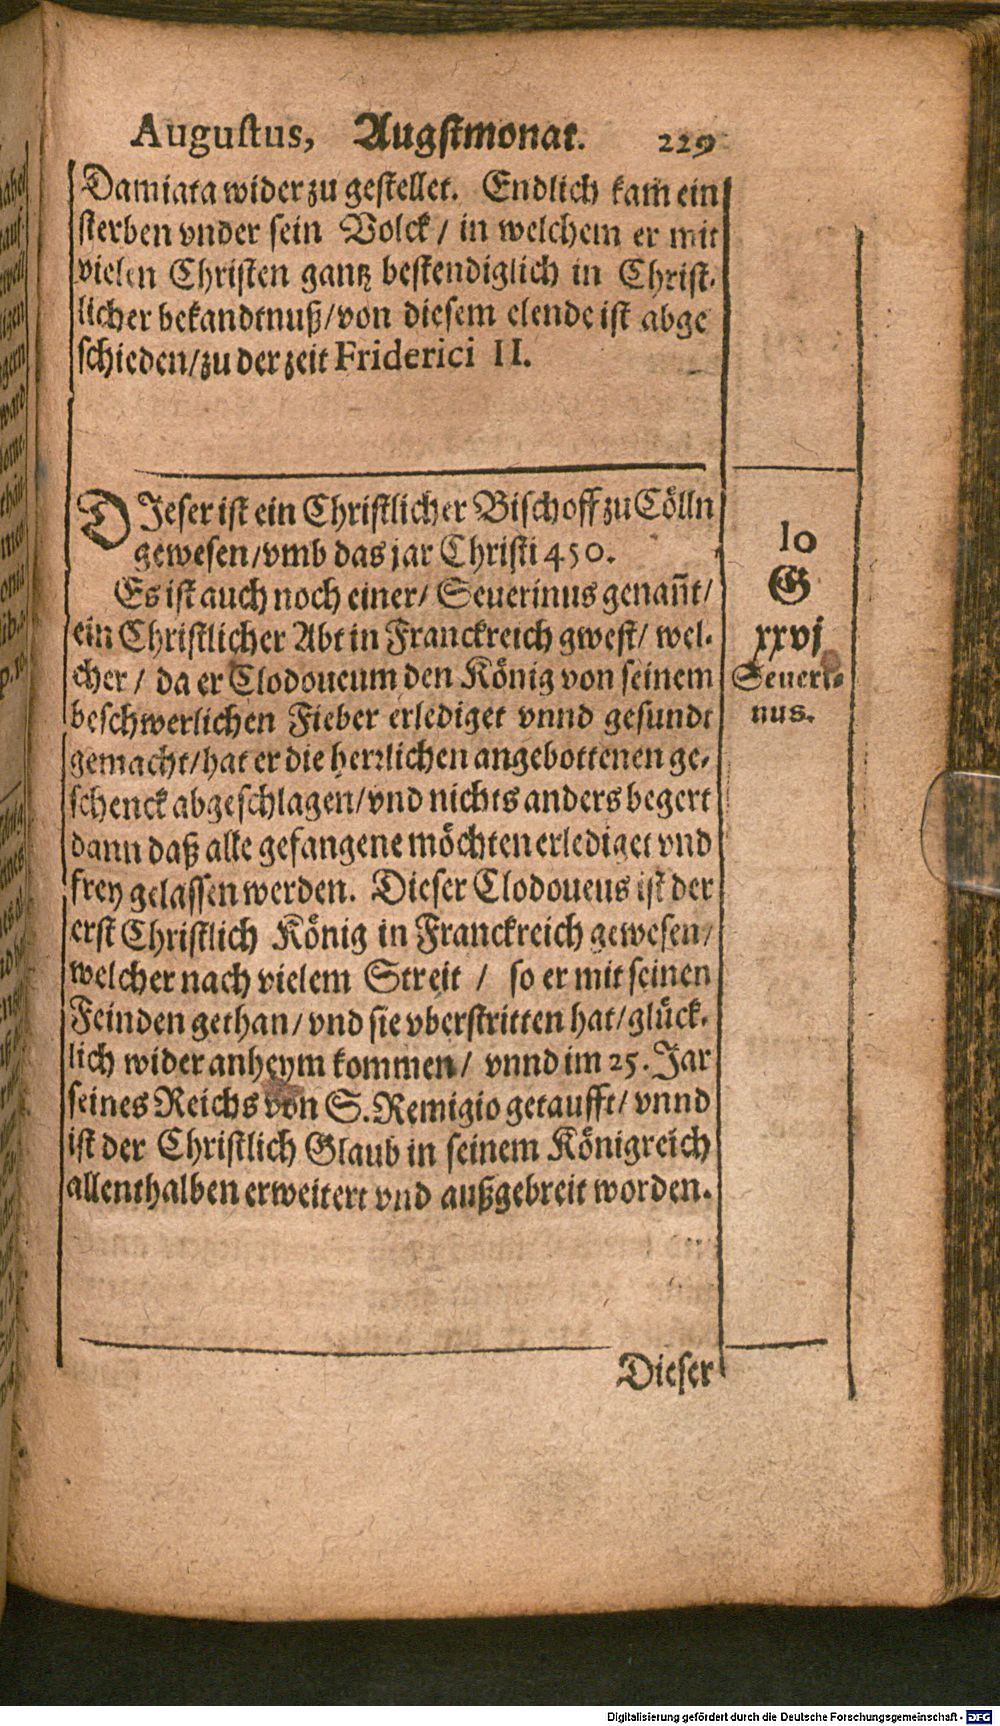 Augustus, Augstmonat. 229
Damiata wider zu gestellet. Endlich kam ein
sterben vnder sein Volck / in welchem er mit
vielen Christen gantz bestendiglich in Christ-
licher bekandtnuß/von diesem elende ist abge
schieden/zu der zeit Friderici II.
DJeser ist ein Christlicher Bischoff zu Cölln
gewesen/vmb das jar Christi 450.
Es ist auch noch einer/ Seuerinus genañt/
ein Christlicher Abt in Franckreich gwest/ wel-
cher / da er Clodoueum den König von seinem
beschwerlichen Fieber erlediget vnnd gesundt
gemacht/hat er die herrlichen angebottenen ge-
schenck abgeschlagen/vnd nichts anders begert
dann daß alle gefangene möchten erlediget vnd
frey gelassen werden. Dieser Clodoueus ist der
erst Christlich König in Franckreich gewesen/
welcher nach vielem Streit / so er mit seinen
Feinden gethan/vnd sie vberstritten hat/glück-
lich wider anheym kommen/ vnnd im 25. Jar
seines Reichs von S. Remigio getaufft/ vnnd
ist der Christlich Glaub in seinem Königreich
allenthalben erweitert vnd außgebreit worden.
10
G
xxvj
Seueri-
nus.
Dieser
Digitalisierung gefördert durch die Deutsche Forschungsgemeinschaft - DFG